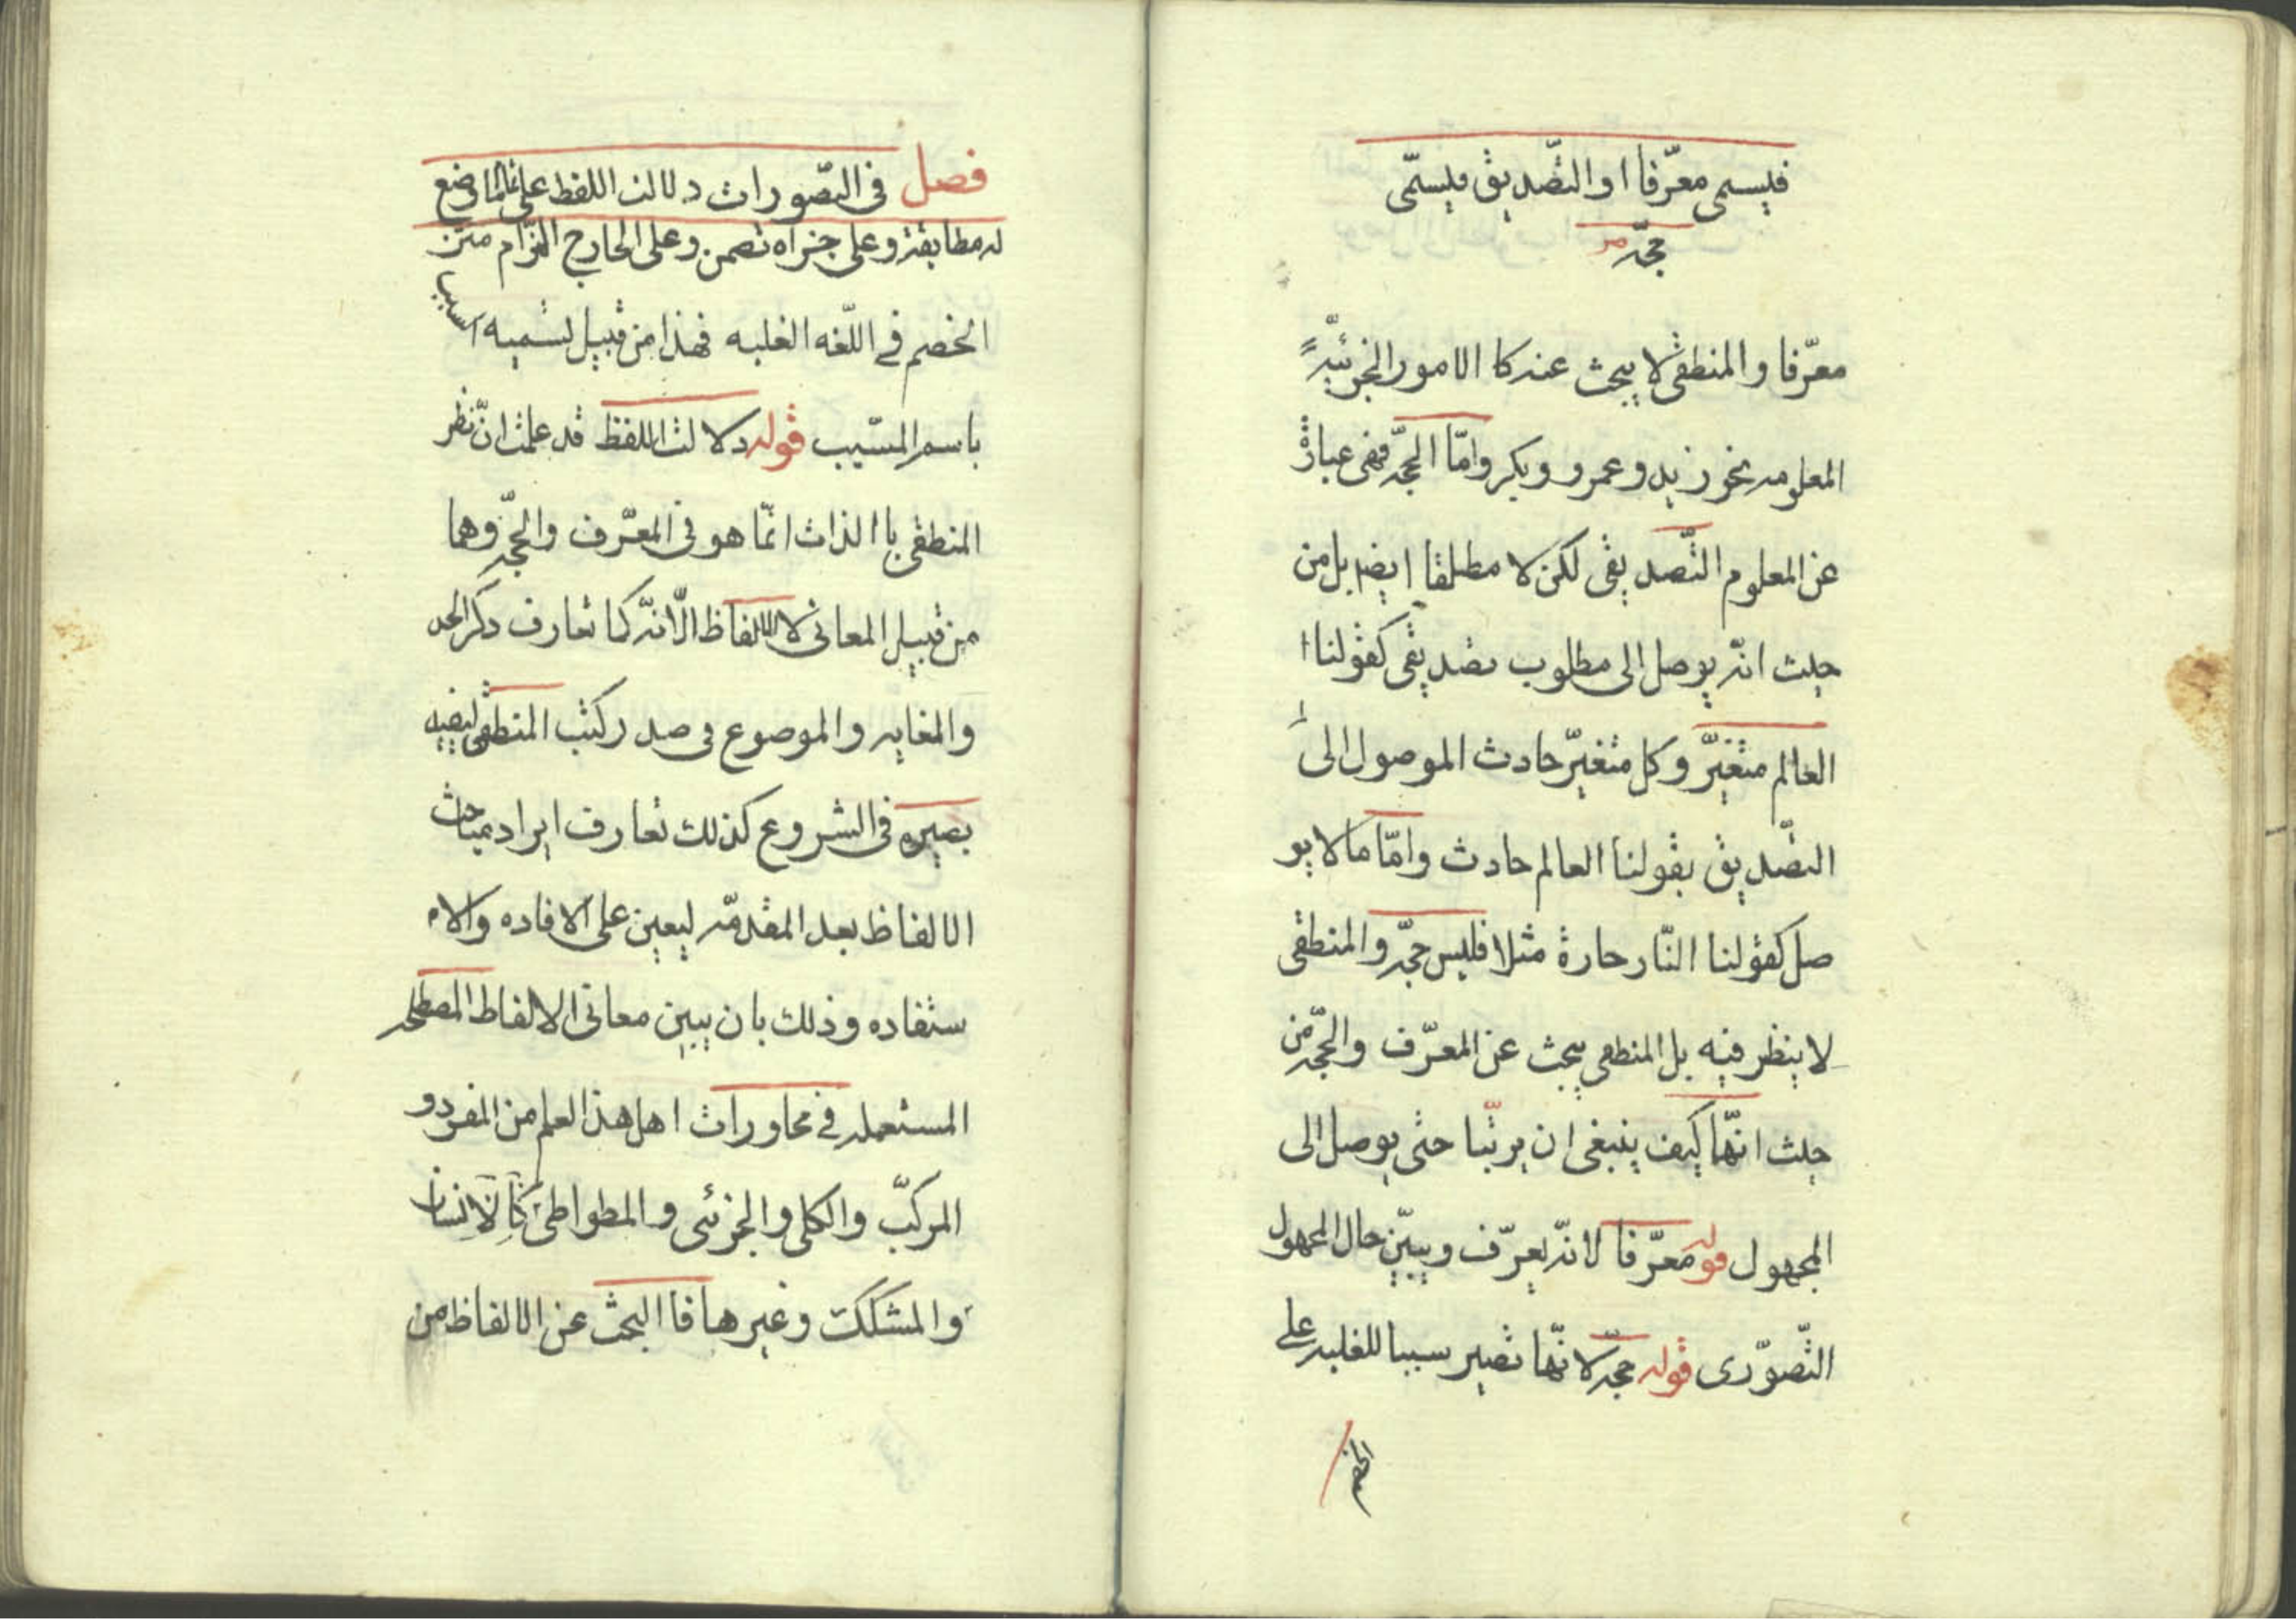 فيسمى معرّفا او التّصديق فيسمّى
حجّة
معرّفا والمنطقى لا يبحث عنه كا الامور الجزئيّة
المعلومه نحو زيد و عمرو وبكر وامّا الحجّه فهى عبارة
عن المعلوم التّصديقى لكن لا مطلقا ايضا بل من
حيث انّه يوصل الى مطلوب تصديقى كقولنا ا
العالم متغيّر وكل متغيّر حادث الموصول الى
التصّديق بقولنا العالم حادث وامّا ما لا يو
صل كقولنا النّار حارة مثلا فليس حجّه والمنطقى
لا ينظر فيه بل المنطقى يبحث عن المعرّف والحجّه من
حيث انّهما كيف ينبغى ان يرتّبا حتى يوصل الى
المجهول قوله معرّفا لانّه يعرّف ويبيّن حال المجهول
التّصوّرى قوله حجّه لانّها تصير سببا للغلبه على
الخصم
فصل فى التصّورات دلالت اللفظ على تمام ما وضع
له مطابقة وعلى جزاه تضمن وعلى الخارج التزام متن
الخصم فے اللّغه الغلبه فهذا من قبيل تسميه السبب
باسم المسّبب قوله دلالت اللفظ قد علمت انّ نظر
المنطقى باالذات انّما هو فى المعرّف والحجّه وهما
من قبيل المعانى لا الالفاظ الّا انّه كما تعارف ذكر الحد
والغايه والموضوع فى صدر كتب المنطقى ليفيه
بصيره فى الشروع كذلك تعارف ايراد مباحث
الالفاظ بعد المقدمّه ليعين على الافاده والا
ستفاده وذلك بان يبين معانى الالفاظ المصطلحه
المستعمله فے محاورات اهل هذا العلم من المفرد و
المركبّ والكلى والجزئى والمطواطى كَالاِنسان
والمشكك وغيرها فا البحث عن الالفاظ من